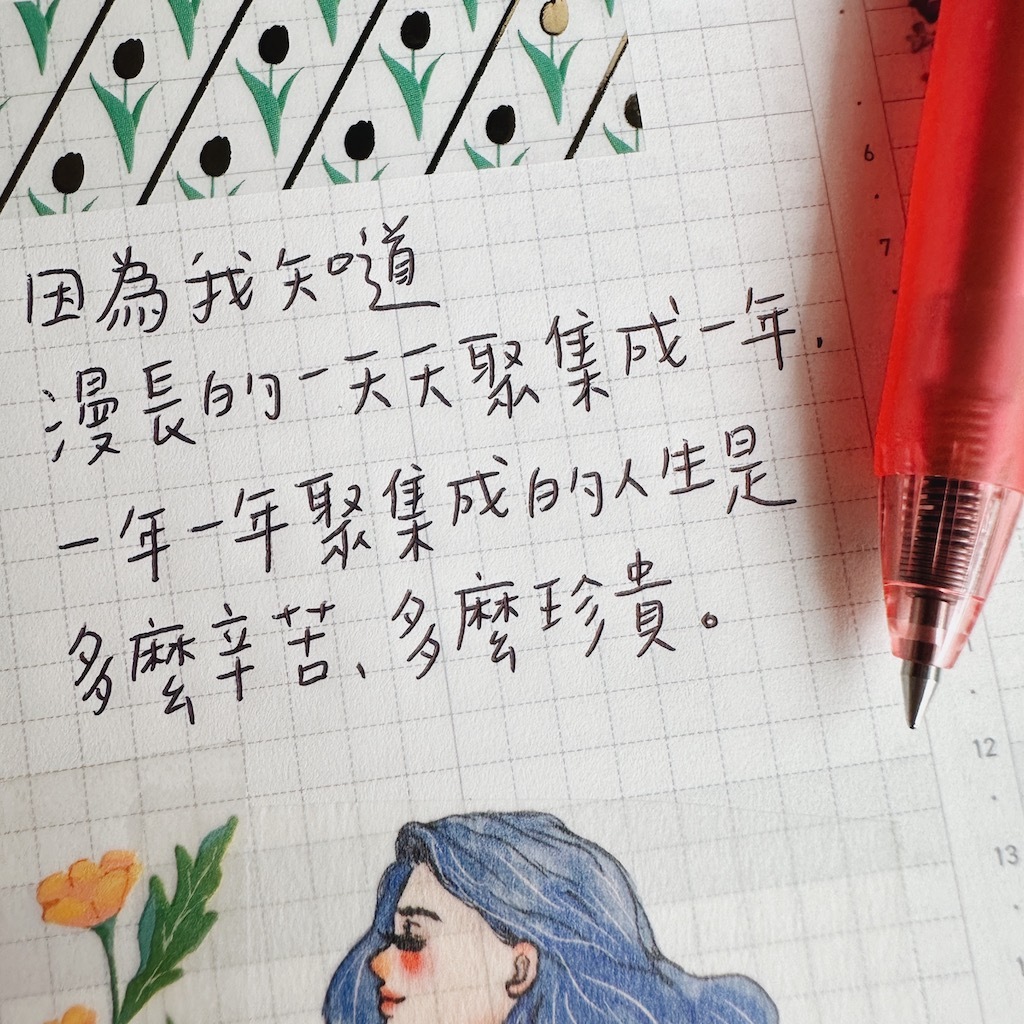 因為我知道
漫長的一天天聚集成一年，
一年一年聚集成的人生是
多麼辛苦、多麼珍貴。
6
7
12
13